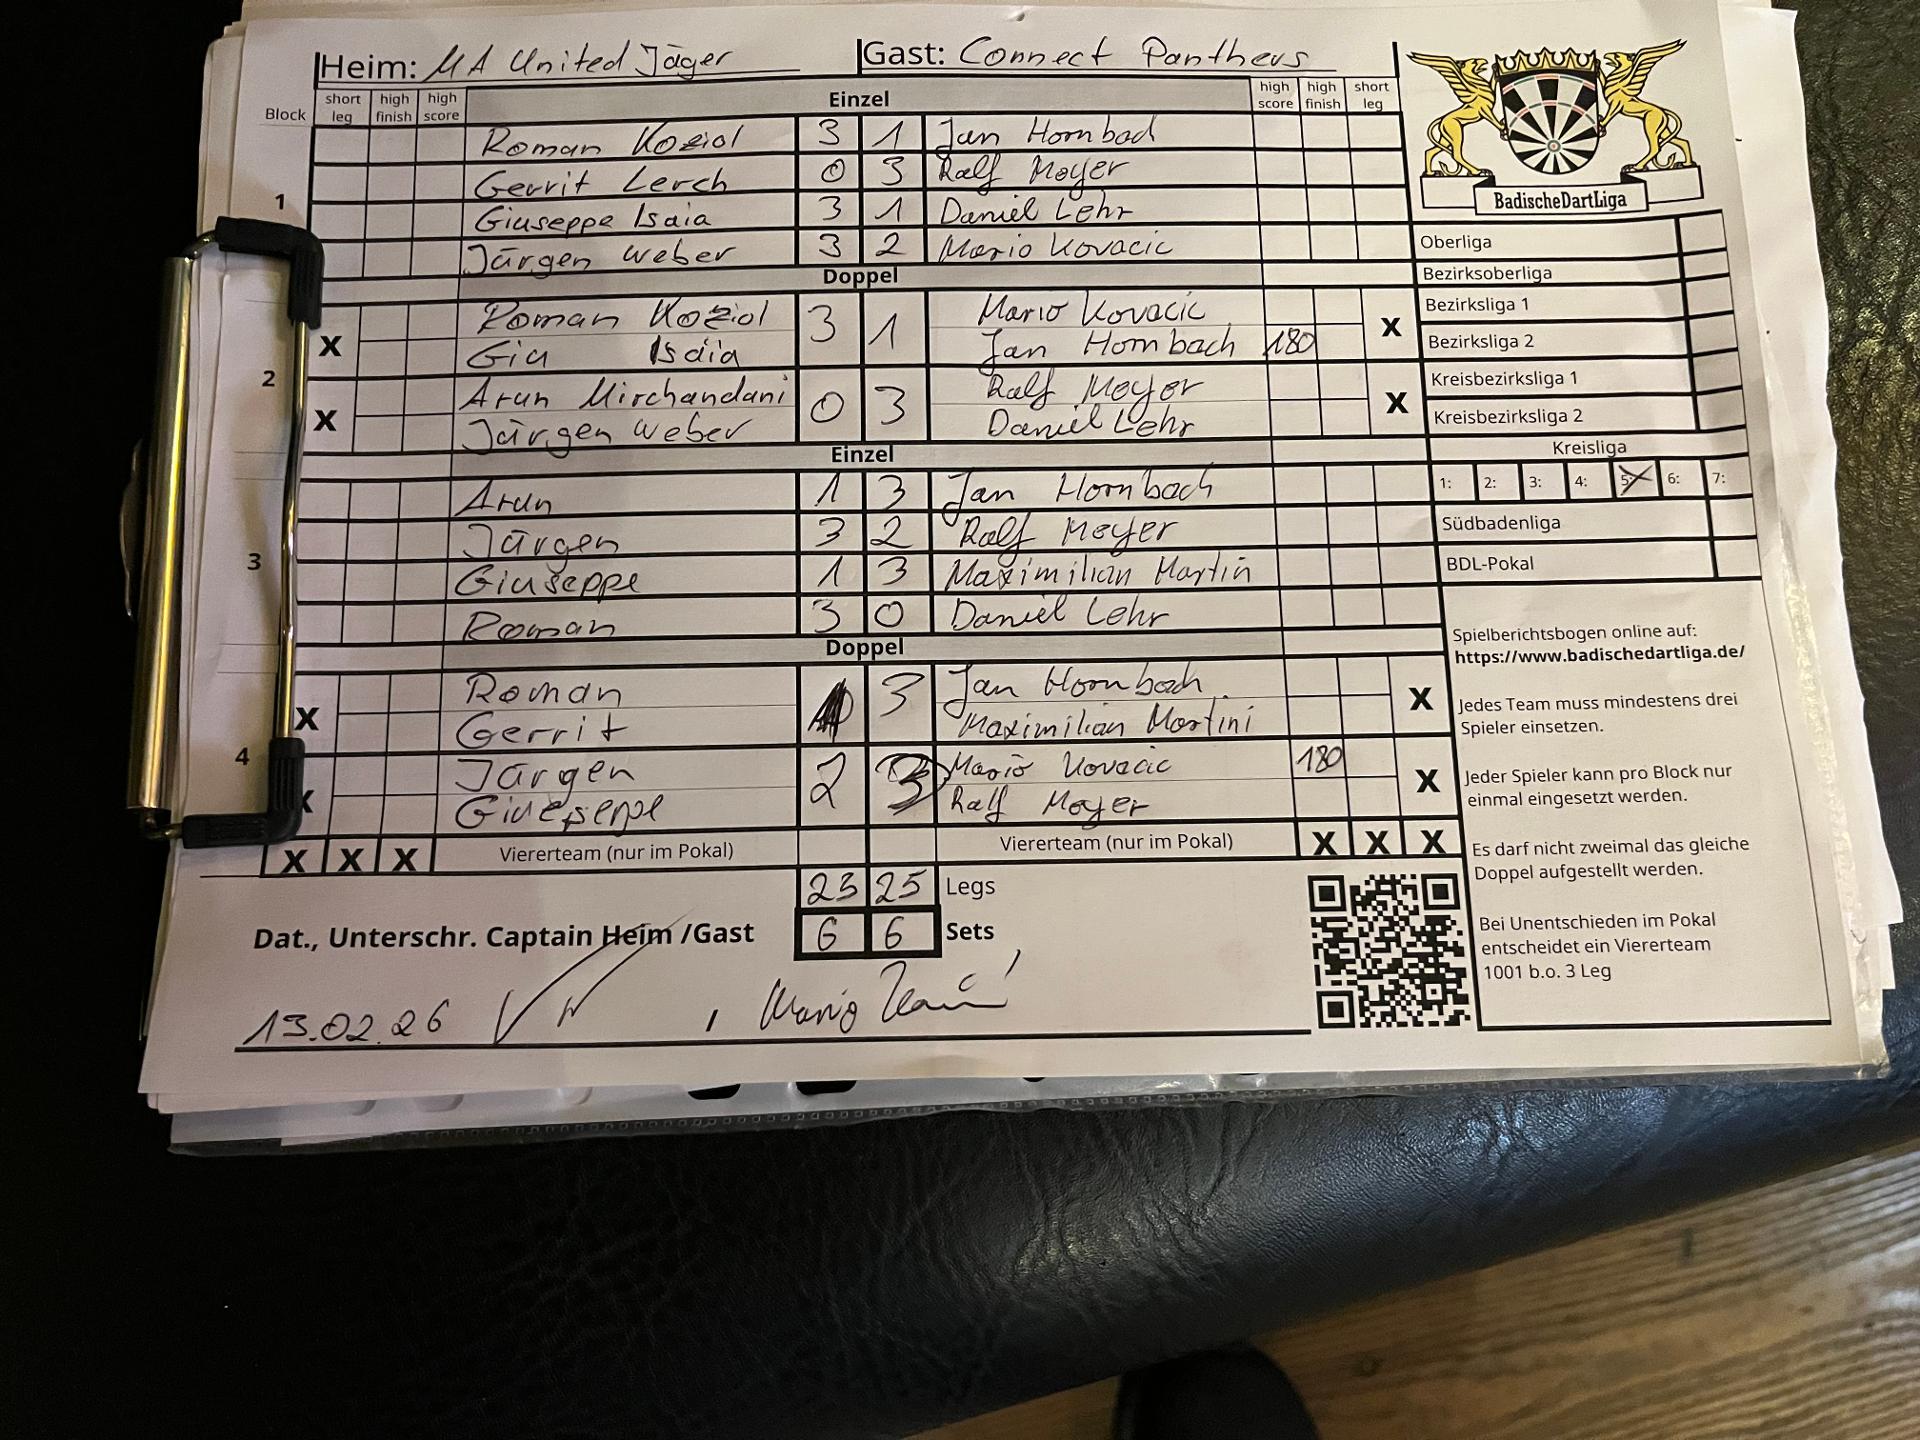 Heim: MA United Jäger Gast: Connect Panthers
Block short leg high finish high score Einzel high score high finish short leg
1
Roman Koziol 3 1 Jan Hornbach
Gerrit Lerch 0 3 Ralf Meyer
Giuseppe Isaia 3 1 Daniel Lehr
Jürgen Weber 3 2 Mario Kovacic
Doppel
2
X Roman Koziol 3 1 Mario Kovacic X
Giu Isaia Jan Hornbach 180
X Arun Mirchandani 0 3 Ralf Meyer X
Jürgen Weber Daniel Lehr
Einzel
3
Arun 1 3 Jan Hornbach
Jürgen 3 2 Ralf Meyer
Giuseppe 1 3 Maximilian Martin
Roman 3 0 Daniel Lehr
Doppel
4
X Roman 3 Jan Hornbach X
Gerrit Maximilian Martini
X Jürgen 2 3 Mario Kovacic 180 X
Giueseppe Ralf Meyer
X X X Viererteam (nur im Pokal) Viererteam (nur im Pokal) X X X
23 25 Legs
6 6 Sets
Dat., Unterschr. Captain Heim /Gast
13.02.26 , Mario
BadischeDartLiga
Oberliga
Bezirksoberliga
Bezirksliga 1
Bezirksliga 2
Kreisbezirksliga 1
Kreisbezirksliga 2
Kreisliga
1: 2: 3: 4: 5: 6: 7:
Südbadenliga
BDL-Pokal
Spielberichtsbogen online auf:
https://www.badischedartliga.de/
Jedes Team muss mindestens drei
Spieler einsetzen.
Jeder Spieler kann pro Block nur
einmal eingesetzt werden.
Es darf nicht zweimal das gleiche
Doppel aufgestellt werden.
Bei Unentschieden im Pokal
entscheidet ein Viererteam
1001 b.o. 3 Leg